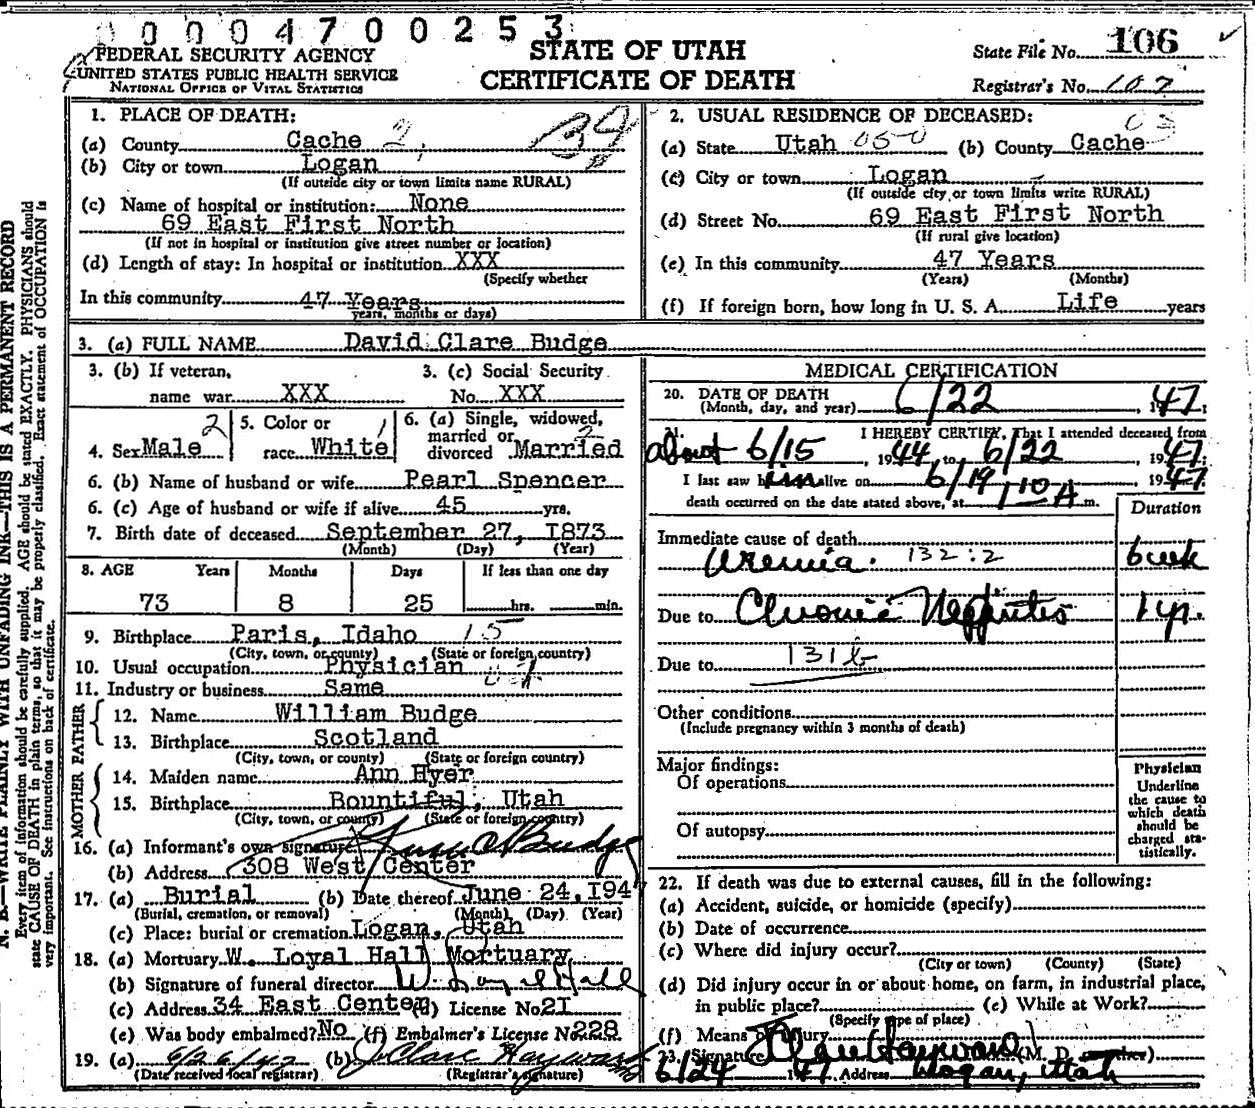 00004700253
FEDERAL SECURITY AGENCY
UNITED STATES PUBLIC HEALTH SERVICE
NATIONAL OFFICE OF VITAL STATISTICS
STATE OF UTAH
CERTIFICATE OF DEATH
State File No. 106
Registrar's No. 107
N. B.—WRITE PLAINLY WITH UNFADING INK—THIS IS A PERMANENT RECORD
Every item of information should be carefully supplied. AGE should be stated EXACTLY. PHYSICIANS should
state CAUSE OF DEATH in plain terms, so that it may be properly classified. Exact statement of OCCUPATION is
very important. See instructions on back of certificate.
1. PLACE OF DEATH:
(a) County Cache 2
(b) City or town Logan
(If outside city or town limits name RURAL)
(c) Name of hospital or institution: None
69 East First North
(If not in hospital or institution give street number or location)
(d) Length of stay: In hospital or institution XXX
(Specify whether
In this community 47 Years
years, months or days)
2. USUAL RESIDENCE OF DECEASED:
03
(a) State Utah 050 (b) County Cache
(c) City or town Logan
(If outside city or town limits write RURAL)
(d) Street No. 69 East First North
(If rural give location)
(e) In this community 47 Years
(Years) (Months)
(f) If foreign born, how long in U. S. A. Life years
3. (a) FULL NAME David Clare Budge
3. (b) If veteran,
name war XXX
3. (c) Social Security
No. XXX
4. Sex Male 2
5. Color or
race White 1
6. (a) Single, widowed,
married or
divorced Married 2
6. (b) Name of husband or wife Pearl Spencer
6. (c) Age of husband or wife if alive 45 yrs.
7. Birth date of deceased September 27, 1873
(Month) (Day) (Year)
8. AGE Years Months Days If less than one day
73 8 25 hrs. min.
9. Birthplace Paris, Idaho 15
(City, town, or county) (State or foreign country)
10. Usual occupation Physician
11. Industry or business Same
FATHER
12. Name William Budge
13. Birthplace Scotland
(City, town, or county) (State or foreign country)
MOTHER
14. Maiden name Ann Hyer
15. Birthplace Bountiful, Utah
(City, town, or county) (State or foreign country)
16. (a) Informant's own signature Budge
(b) Address 308 West Center
17. (a) Burial (b) Date thereof June 24, 194
(Burial, cremation, or removal) (Month) (Day) (Year)
(c) Place: burial or cremation Logan, Utah
18. (a) Mortuary W. Loyal Hall Mortuary
(b) Signature of funeral director W. Loyal Hall
(c) Address 34 East Center (d) License No. 21
(e) Was body embalmed? No (f) Embalmer's License No. 228
19. (a) (b) J Clare Hayward
(Date received local registrar) (Registrar's signature)
MEDICAL CERTIFICATION
20. DATE OF DEATH
(Month, day, and year) 6/22, 1947
21. I HEREBY CERTIFY, That I attended deceased from
about 6/15, 1944 to 6/22 1947
I last saw him alive on 6/19 1947
death occurred on the date stated above, at 1 10 A m.
Duration
Immediate cause of death
Uremia. 132:2 6 week
Due to Chronic Nephritis 1 yr.
Due to 131 b
Other conditions
(Include pregnancy within 3 months of death)
Major findings:
Of operations
Of autopsy
Physician
Underline
the cause to
which death
should be
charged sta-
tistically.
22. If death was due to external causes, fill in the following:
(a) Accident, suicide, or homicide (specify)
(b) Date of occurrence
(c) Where did injury occur?
(City or town) (County) (State)
(d) Did injury occur in or about home, on farm, in industrial place,
in public place? (e) While at Work?
(Specify type of place)
(f) Means of injury
23. Signature J Clare Hayward (M. D. or other)
6/24 1947 Address Logan, Utah